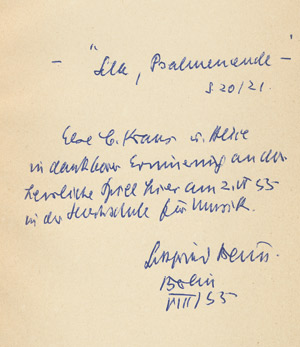 – "Sela, Psalmenende" –
S 20/21.
Else C. Kraus u. Alice
in dankbarer Erinnerung an das
herrliche Spiel hier am 2. VI 55
in der Hochschule für Musik.
Gottfried Benn.
Berlin
VIII/55